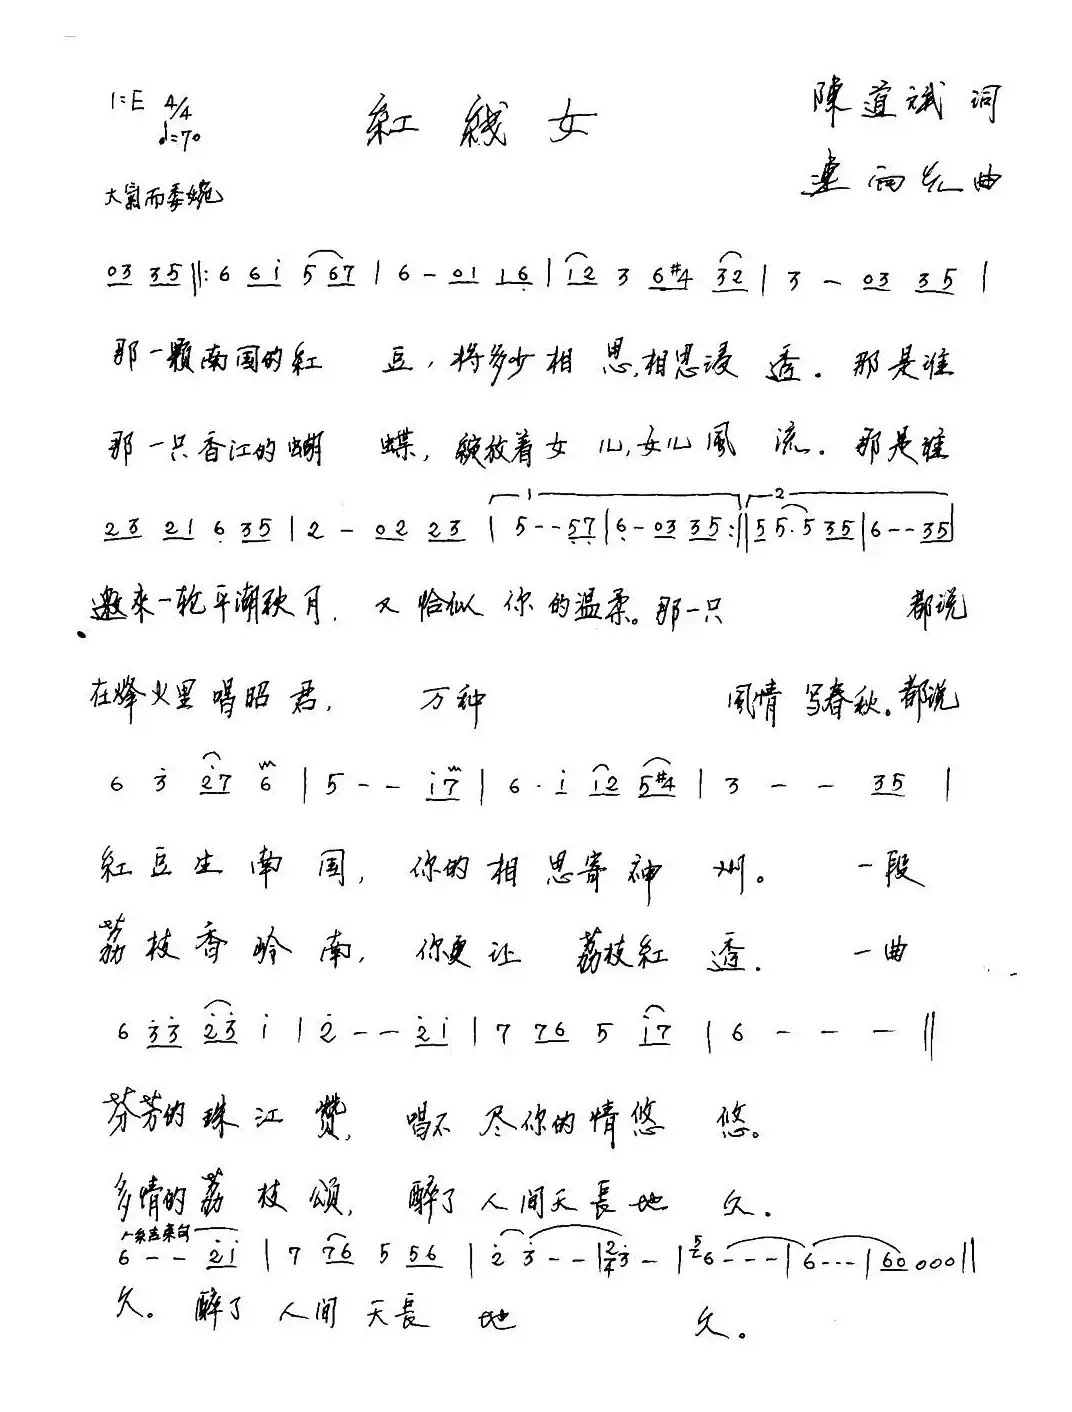 1=E 4/4
♩=70
紅线女
陳道斌 词
曲
大氣而委婉
03 35 ‖: 6 6i 5 67 | 6 - 01 16 | i2 3 6#4 32 | 3 - 03 35 |
那一颗南国的紅 豆，将多少相 思,相思浸 透．那是谁
那一只香江的蝴 蝶，绽放着女 儿,女儿風 流．那是谁
1 2
23 21 6 35 | 2 - 02 23 | 5 - - 57 | 6 - 03 35 :‖ 55·5 35 | 6 - - 35 |
邀来一轮平湖秋月． 又恰似你的温柔。那一只 都说
在烽火里唱昭君， 万种 風情写春秋。都说
6 3 27 6 | 5 - - i7 | 6 · i i2 5#4 | 3 - - 35 |
紅豆生南国， 你的相思寄神州。 一段
荔枝香岭南， 你更让 荔枝紅透． 一曲
6 33 23 i | 2 - - 2i | 7 76 5 i7 | 6 - - - ‖
芬芳的珠江赞， 唱不尽你的情悠悠。
多情的荔枝颂， 醉了人间天長地久．
结束句
6 - - 2i | 7 76 5 56 | 2 3 - - | 2/4 3 - | 6 - - - | 6 - - - | 60 000 ‖
久。 醉了 人间 天長 地 久。